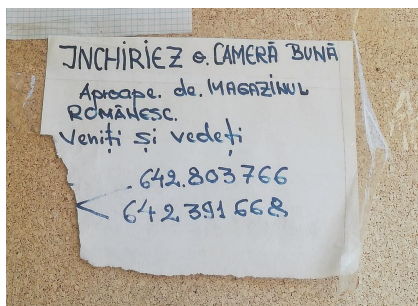 JNCHIRIEZ o. CAMERĂ BUNĂ
Aproape. de. MAGAZINUL
ROMÂNESC.
Veniți și vedeți
.642.803766
642391668